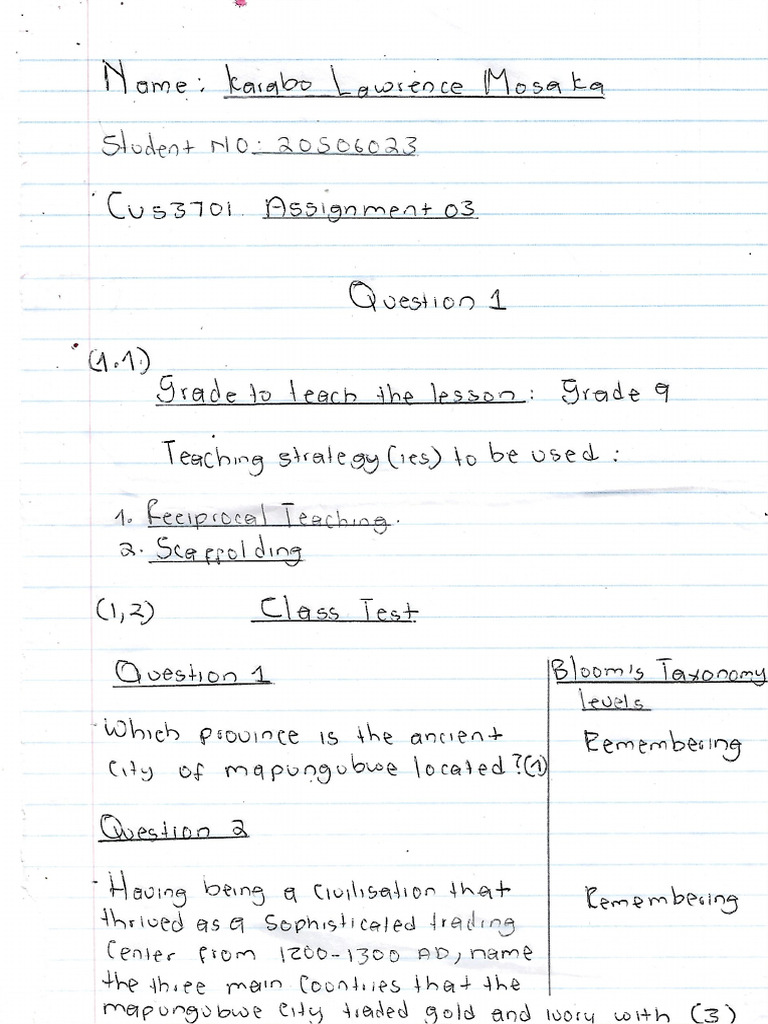 Name: Karabo Lawrence Mosaka
Student NO: 20506023
CUS3701 Assignment 03
Question 1
(1.1)
Grade to teach the lesson: Grade 9
Teaching strategy(ies) to be used:
1. Reciprocal Teaching.
2. Scaffolding
(1,2) Class Test
Question 1
Bloom's Taxonomy
levels
- Which province is the ancient
city of mapungubwe located? (1)
Remembering
Question 2
- Having being a Civilisation that
thrived as a Sophisticated trading
Center from 1200-1300 AD, name
the three main Countries that the
mapungubwe City traded gold and Ivory with (3)
Remembering